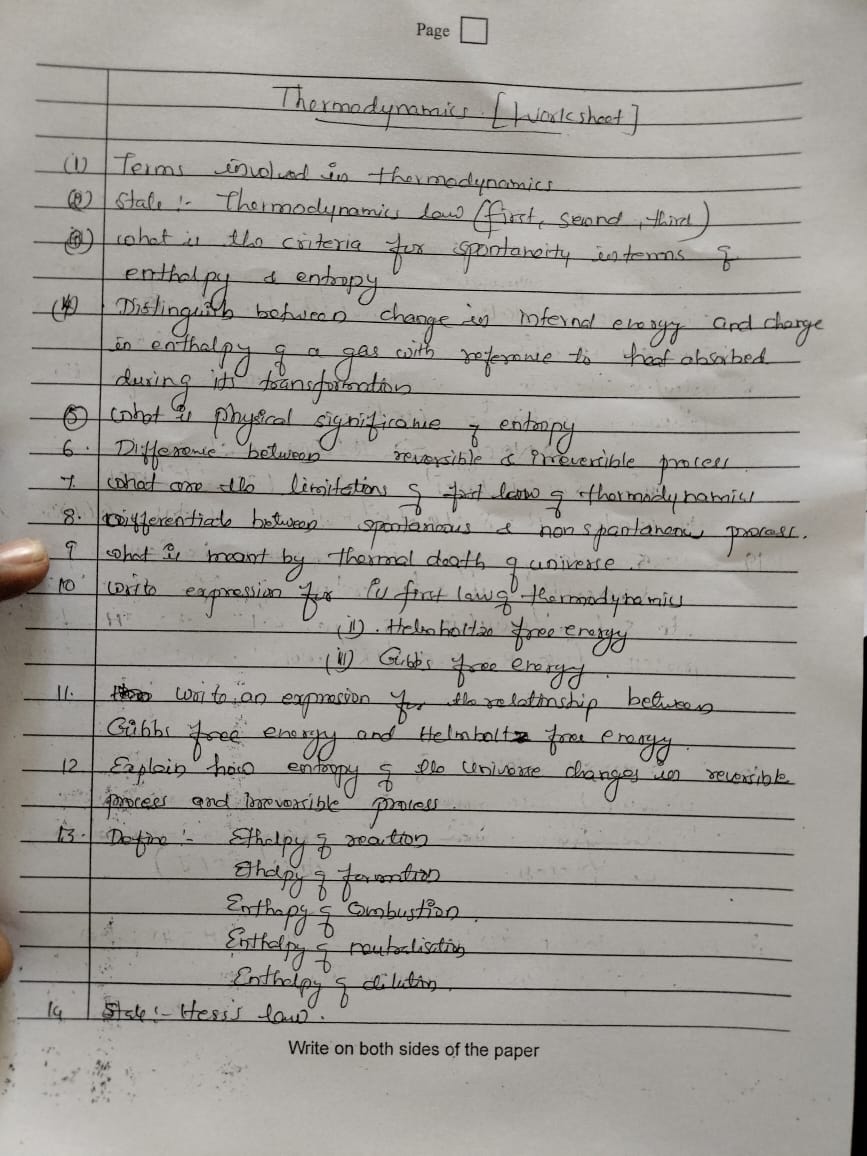 Page
Thermodynamics. [Worksheet]
(1) Terms involved in thermodynamics
(2) State :- Thermodynamics law (first, second, third)
(3) what is the criteria for spontaneity interms of
enthalpy & entropy
(4) Distinguish between change in internal energy and change
in enthalpy of a gas with reference to heat absorbed
during its transformation
(5) what is physical significance of entropy
6. Difference between reversible & irreversible process
7. what are the limitations of first law of thermodynamics
8. Differentiate between spontaneous & non spontaneous process.
9 what is meant by thermal death of universe.
10 write expression for (i) first law of thermodynamics
(ii). Helmholtz free energy
(iii) Gibbs free energy.
11. write an expression for the relatinship between
Gibbs free energy and Helmholtz free energy.
12 Explain how entropy of the universe changes in reversible
process and irreversible process.
13. Define :- Ethalpy of reaction
Ethalpy of formation
Enthapy of combustion.
Enthalpy of neutralisation
Enthalpy of dilution.
14 State :- Hess's law.
Write on both sides of the paper